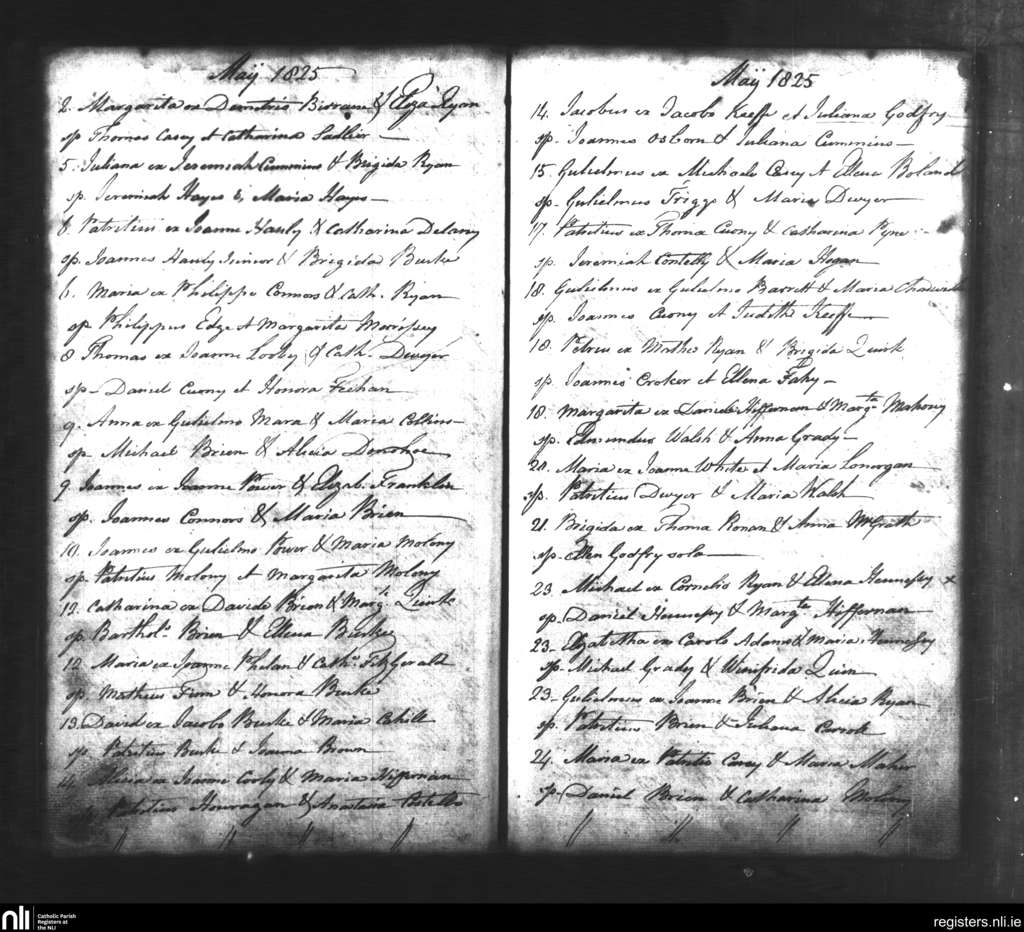 Maij 1825
2. Margarita ex Demetrio & Eliza Ryan
sp Thomas Casey et Catharina Sadlier
5. Juliana ex Jeremiah Cummins & Brigida Ryan
sp. Jeremiah Hayes & Maria Hayes
6. Patritius ex Joanne Hauly & Catharina Delany
sp. Joannes Hauly Junior & Brigida Burke
6. Maria ex Philippo Connors & Cath. Ryan
sp Philippus Edge et Margarita Morrissey
8 Thomas ex Joanne Looby & Cath. Dwyer
sp Daniel Cuony et Honora Feehan
9. Anna ex Gulielmo Mara & Maria Collins
sp Michael Brien & Alicia Donohoe
9 Joannes ex Joanne Power & Elizab. Franklin
sp. Joannes Connors & Maria Brien
10. Joannes ex Gulielmo Power & Maria Molony
sp. Patritius Molony et Margarita Molony
12. Catharina ex Davide Brien & Margt. Quirk
sp Barthol. Brien & Ellena Burke
12. Maria ex Joanne Phelan & Cath. FitzGerald
sp. Matheus Finn & Honora Burke
13. David ex Jacobo Burke & Maria Cahill
sp. Patritius Burke & Joanna Brown
14. Alicia ex Joanne Cooly & Maria Hiffernan
Patritius & Anastasia Costello
Maij 1825
14. Jacobus ex Jacobo Keeffe et Juliana Godfry
sp. Joannes Osborn & Juliana Cummins
15. Gulielmus ex Michaele Casey et Ellena Boland
sp. Gulielmus Triggs & Maria Dwyer
17. Patritius ex Thoma Cuony & Catharina Pyne
sp. Jeremiah Contelly & Maria Hogan
18. Gulielmus ex Gulielmo Barrett & Maria
sp. Joannes Cuony et Judith Keeffe
18. Petrus ex Matheo Ryan & Brigida Quirk
sp. Joannes Croker et Ellena Fahy
18. Margarita ex Daniele Hiffernan & Margta Mahony
sp. Edmundus Walsh & Anna Grady
20. Maria ex Joanne White et Maria Lonorgan
sp. Patritius Dwyer & Maria Walsh
21. Brigida ex Thoma Ronan & Anna McGrath
sp. Ellen Godfry sola
23. Michael ex Cornelio Ryan & Ellena Hennessy x
sp. Daniel Hennessy & Margta Hiffernan
23. Elizabetha ex Carolo Adams & Maria Hennessy
sp. Michael Grady & Winifrida Quin
23. Gulielmus ex Joanne Brien & Alicia Ryan
sp. Patritius Brien & Juliana Carroll
24. Maria ex Patritio Casey & Maria Maher
sp. Daniel Brien & Catharina Molony
nli
Catholic Parish
Registers at
the NLI
registers.nli.ie